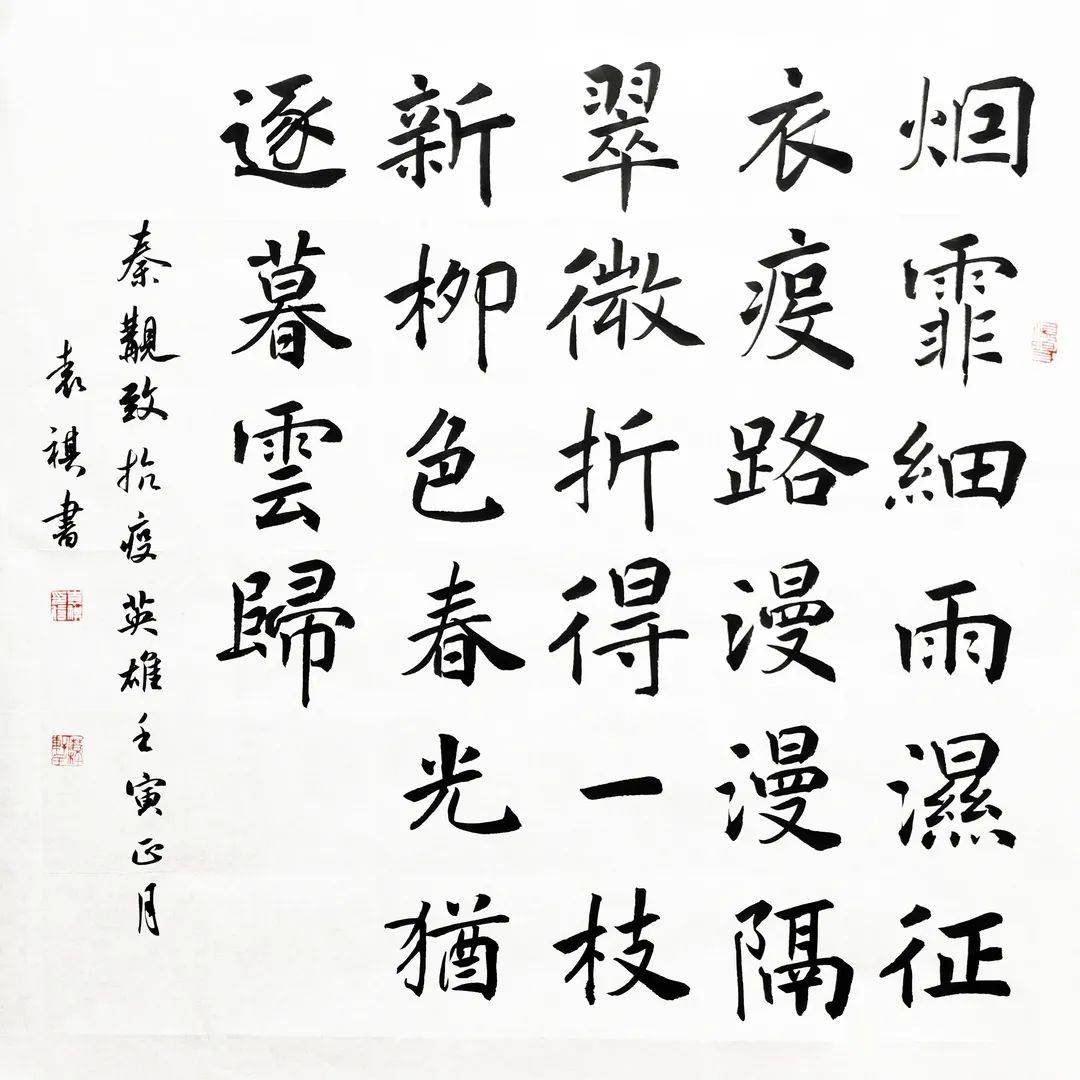 烟霏細雨濕征
衣疫路漫漫隔
翠微折得一枝
新柳色春光猶
逐暮雲歸
秦觀致抗疫英雄壬寅正月
袁祺書